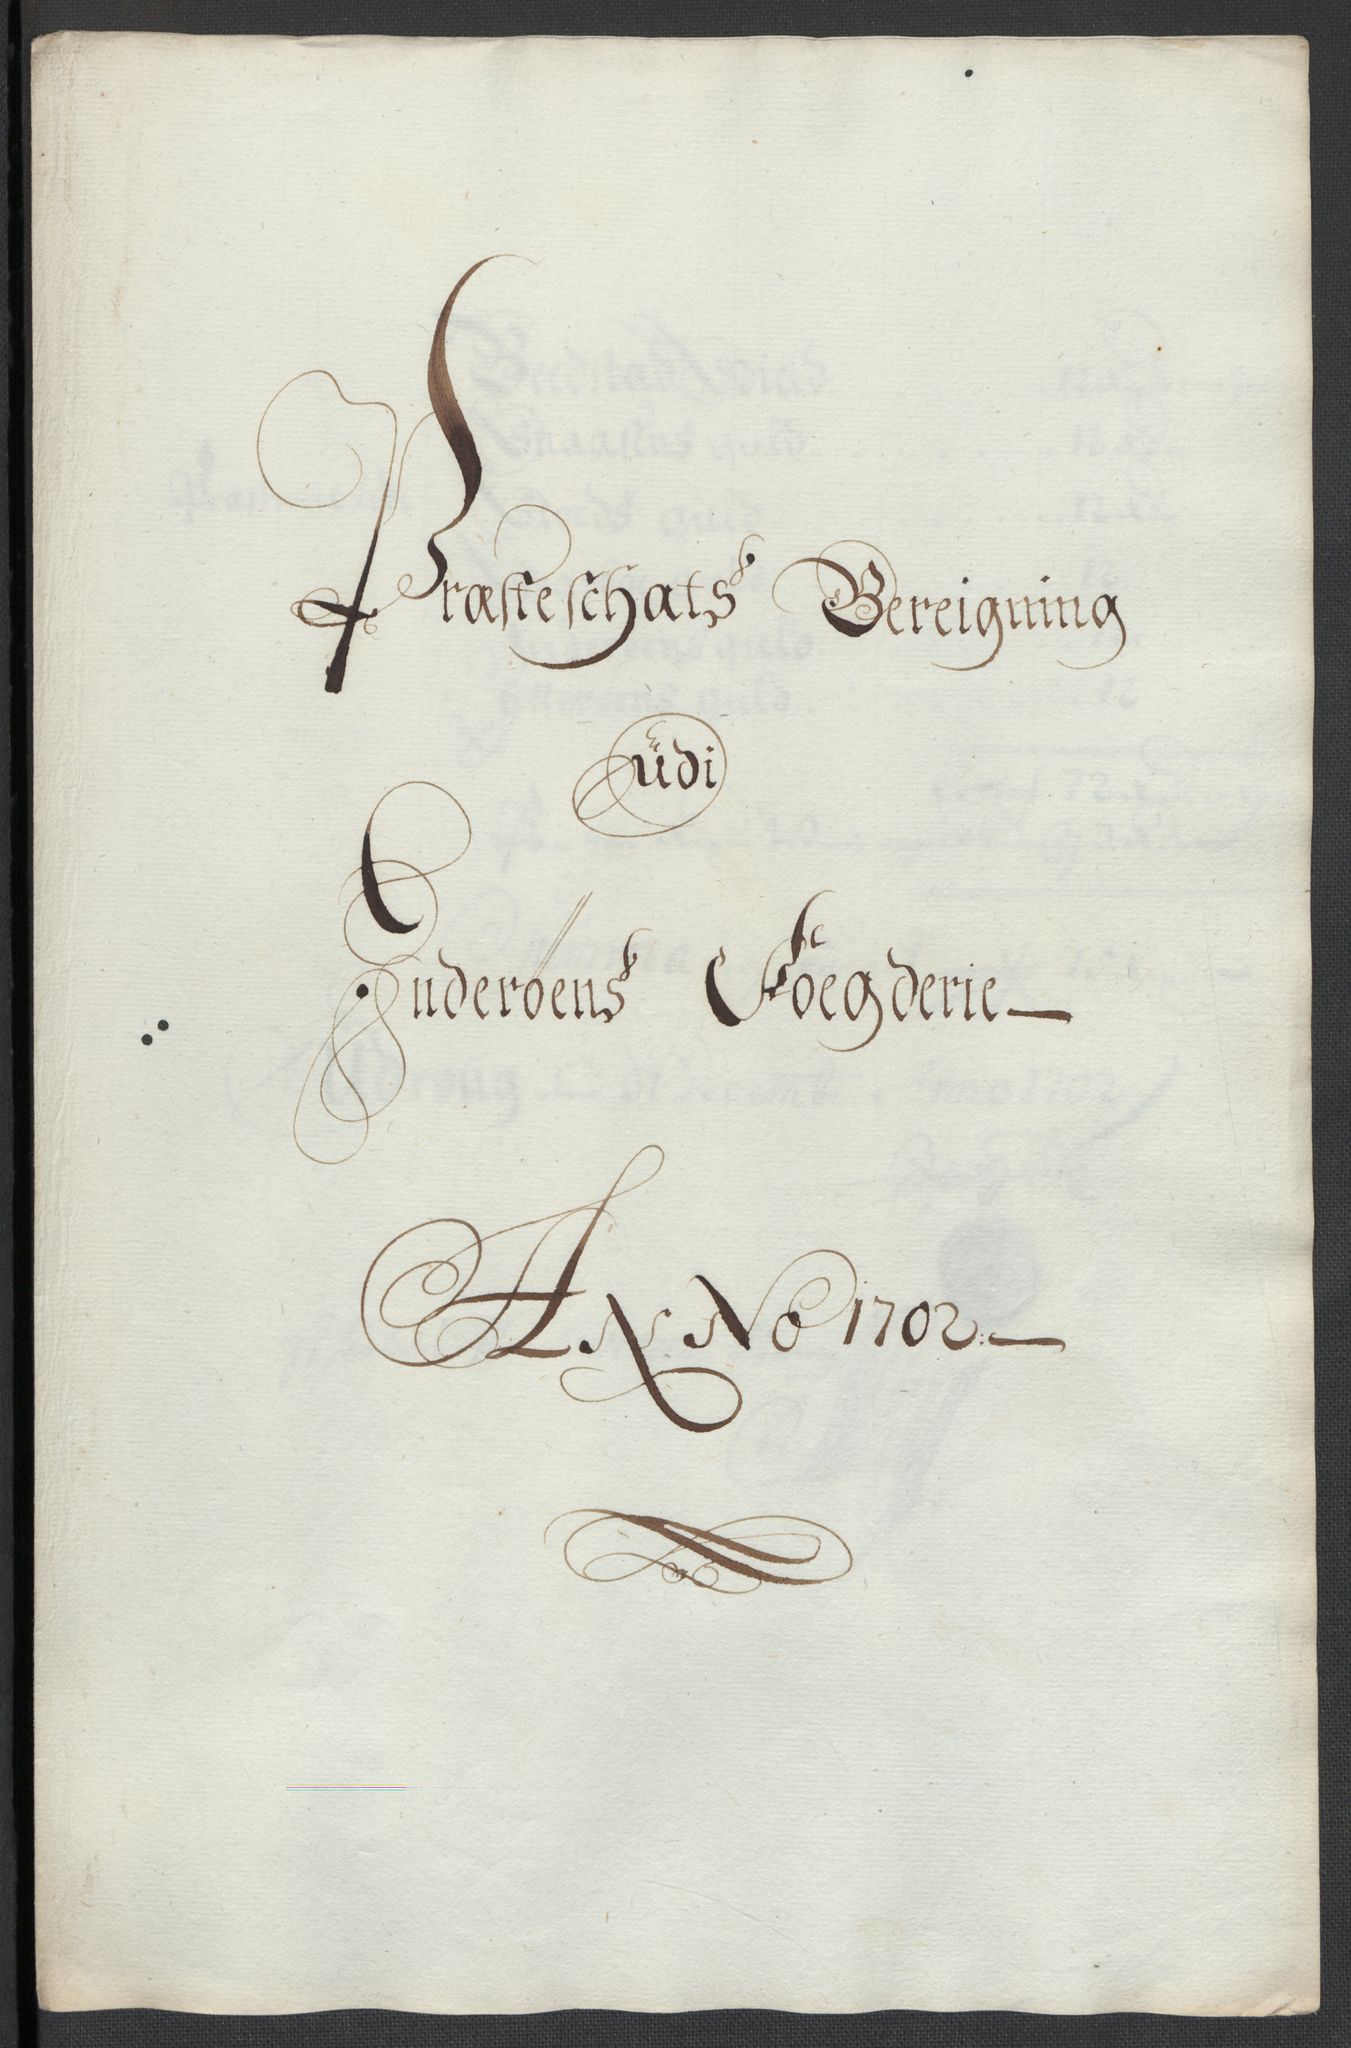 Præsteschats Bereigning
üdi
Inderøens Foegderie
ANNO 1702.